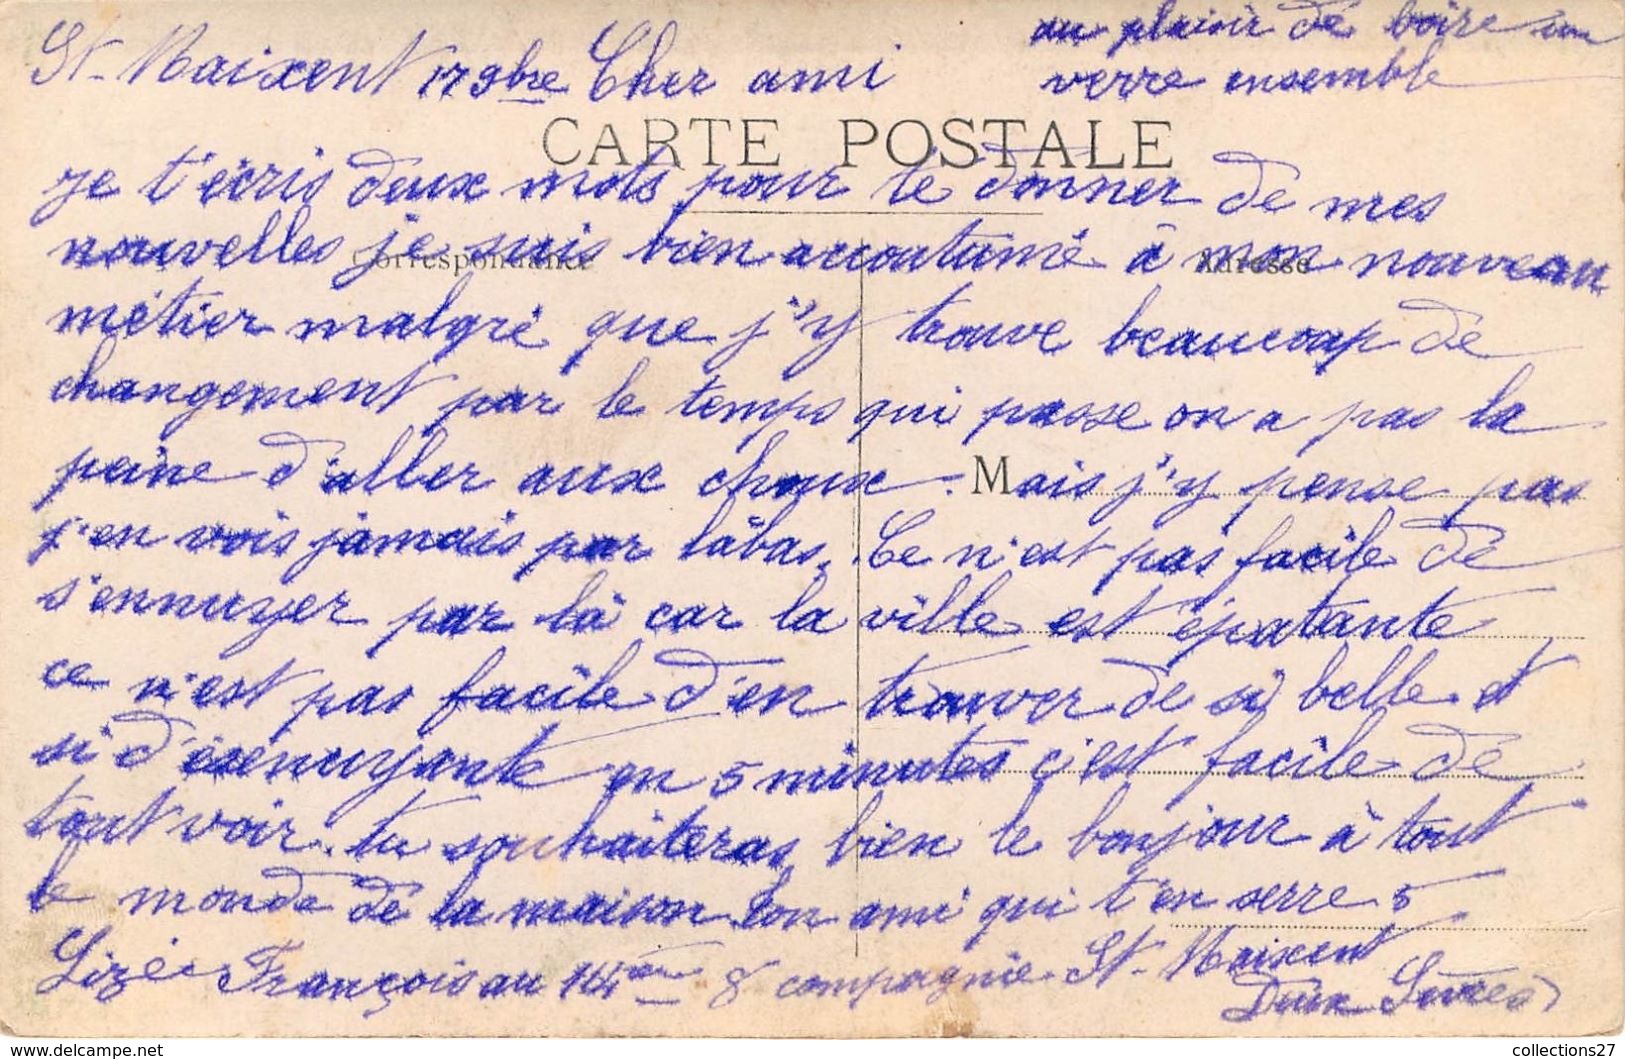 au plaisir de boire un
verre ensemble
St-Maixent 17 9bre Cher ami
CARTE POSTALE
Je t'écris deux mots pour te donner de mes
Correspondance
Adresse
nouvelles je suis bien accoutumé à mon nouveau
métier malgré que j'y trouve beaucoup de
changement par le temps qui passe on a pas la
peine d'aller aux choux. Mais j'y pense pas
j'en vois jamais par làbas. Ce n'est pas facile de
s'ennuyer par là car la ville est épatante
ce n'est pas facile d'en trouver de si belle et
si désenuyante en 5 minutes c'est facile de
tout voir. tu souhaiteras bien le bonjour à tout
le monde de la maison ton ami qui t'en serre 5
Lizé François au 114em 8 compagnie St-Maixent
Deux Sevres
collections27